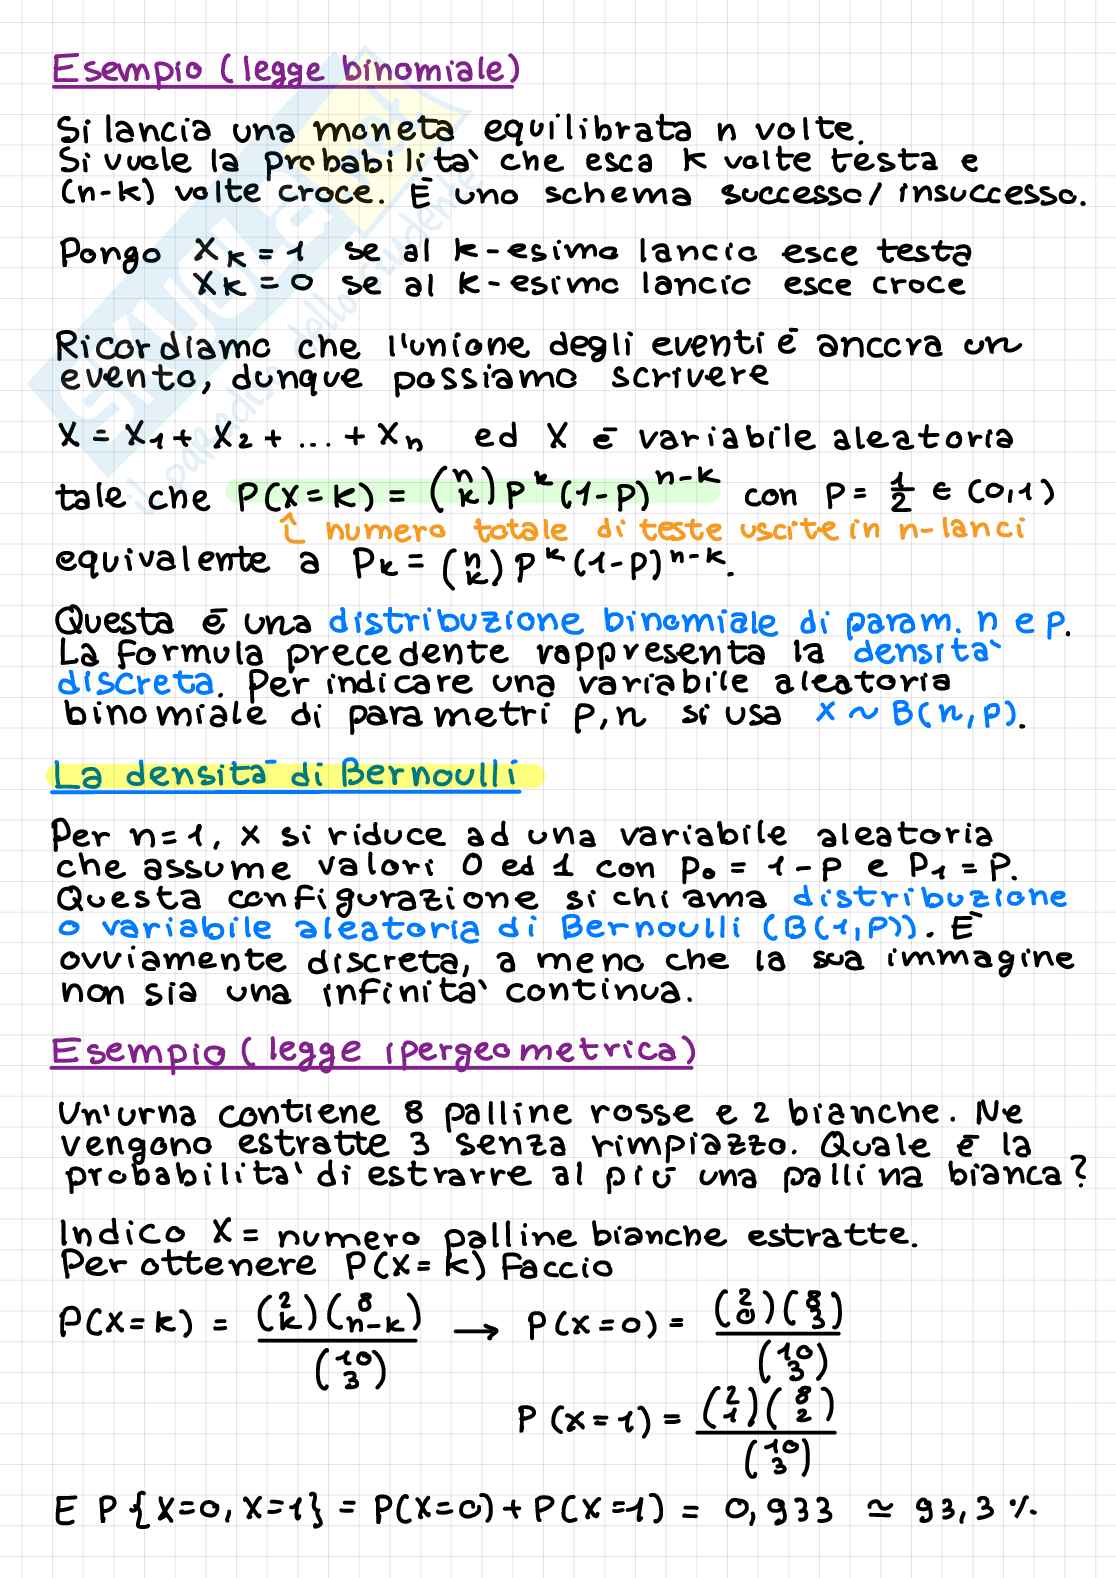 Esempio (legge binomiale)
Si lancia una moneta equilibrata n volte.
Si vuole la probabilità che esca k volte testa e
(n-k) volte croce. È uno schema successo/insuccesso.
Pongo Xk = 1 se al k-esimo lancio esce testa
Xk = 0 se al k-esimo lancio esce croce
Ricordiamo che l'unione degli eventi è ancora un
evento, dunque possiamo scrivere
X = X1 + X2 + ... + Xn ed X è variabile aleatoria
tale che P(X=k) = (n k) p^k (1-p)^n-k con p = 1/2 ∈ (0,1)
numero totale di teste uscite in n-lanci
equivalente a Pk = (n k) p^k (1-p)^n-k.
Questa è una distribuzione binomiale di param. n e p.
La formula precedente rappresenta la densità
discreta. Per indicare una variabile aleatoria
binomiale di parametri p,n si usa X ~ B(n,p).
La densità di Bernoulli
Per n=1, X si riduce ad una variabile aleatoria
che assume valori 0 ed 1 con p0 = 1-p e p1 = p.
Questa configurazione si chiama distribuzione
o variabile aleatoria di Bernoulli (B(1,p)). È
ovviamente discreta, a meno che la sua immagine
non sia una infinità continua.
Esempio (legge ipergeometrica)
Un'urna contiene 8 palline rosse e 2 bianche. Ne
vengono estratte 3 senza rimpiazzo. Quale è la
probabilità di estrarre al più una pallina bianca?
Indico X = numero palline bianche estratte.
Per ottenere P(X=k) faccio
P(X=k) = (2 k)(8 n-k) / (10 3) → P(X=0) = (2 0)(8 3) / (10 3)
P(X=1) = (2 1)(8 2) / (10 3)
E P{X=0, X=1} = P(X=0) + P(X=1) = 0,933 ≃ 93,3 %